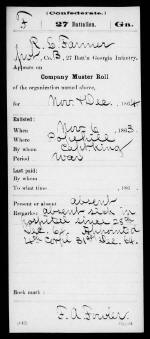 (Confederate.)
F 27 Battalion. Ga.
R. E. Farmer
Pvt, Co. B, 27 Batt'n Georgia Infantry.
Appears on
Company Muster Roll
of the organization named above,
for Nov & Dec, 1864
Enlisted:
When Nov 6, 1863.
Where
By whom
Period war
Last paid:
By whom
To what time , 186 .
Present or absent absent
Remarks: absent sick in
hospital since 28th
Dec. 64. Appointed
4th Corpl 31st Dec. 64.
Book mark: